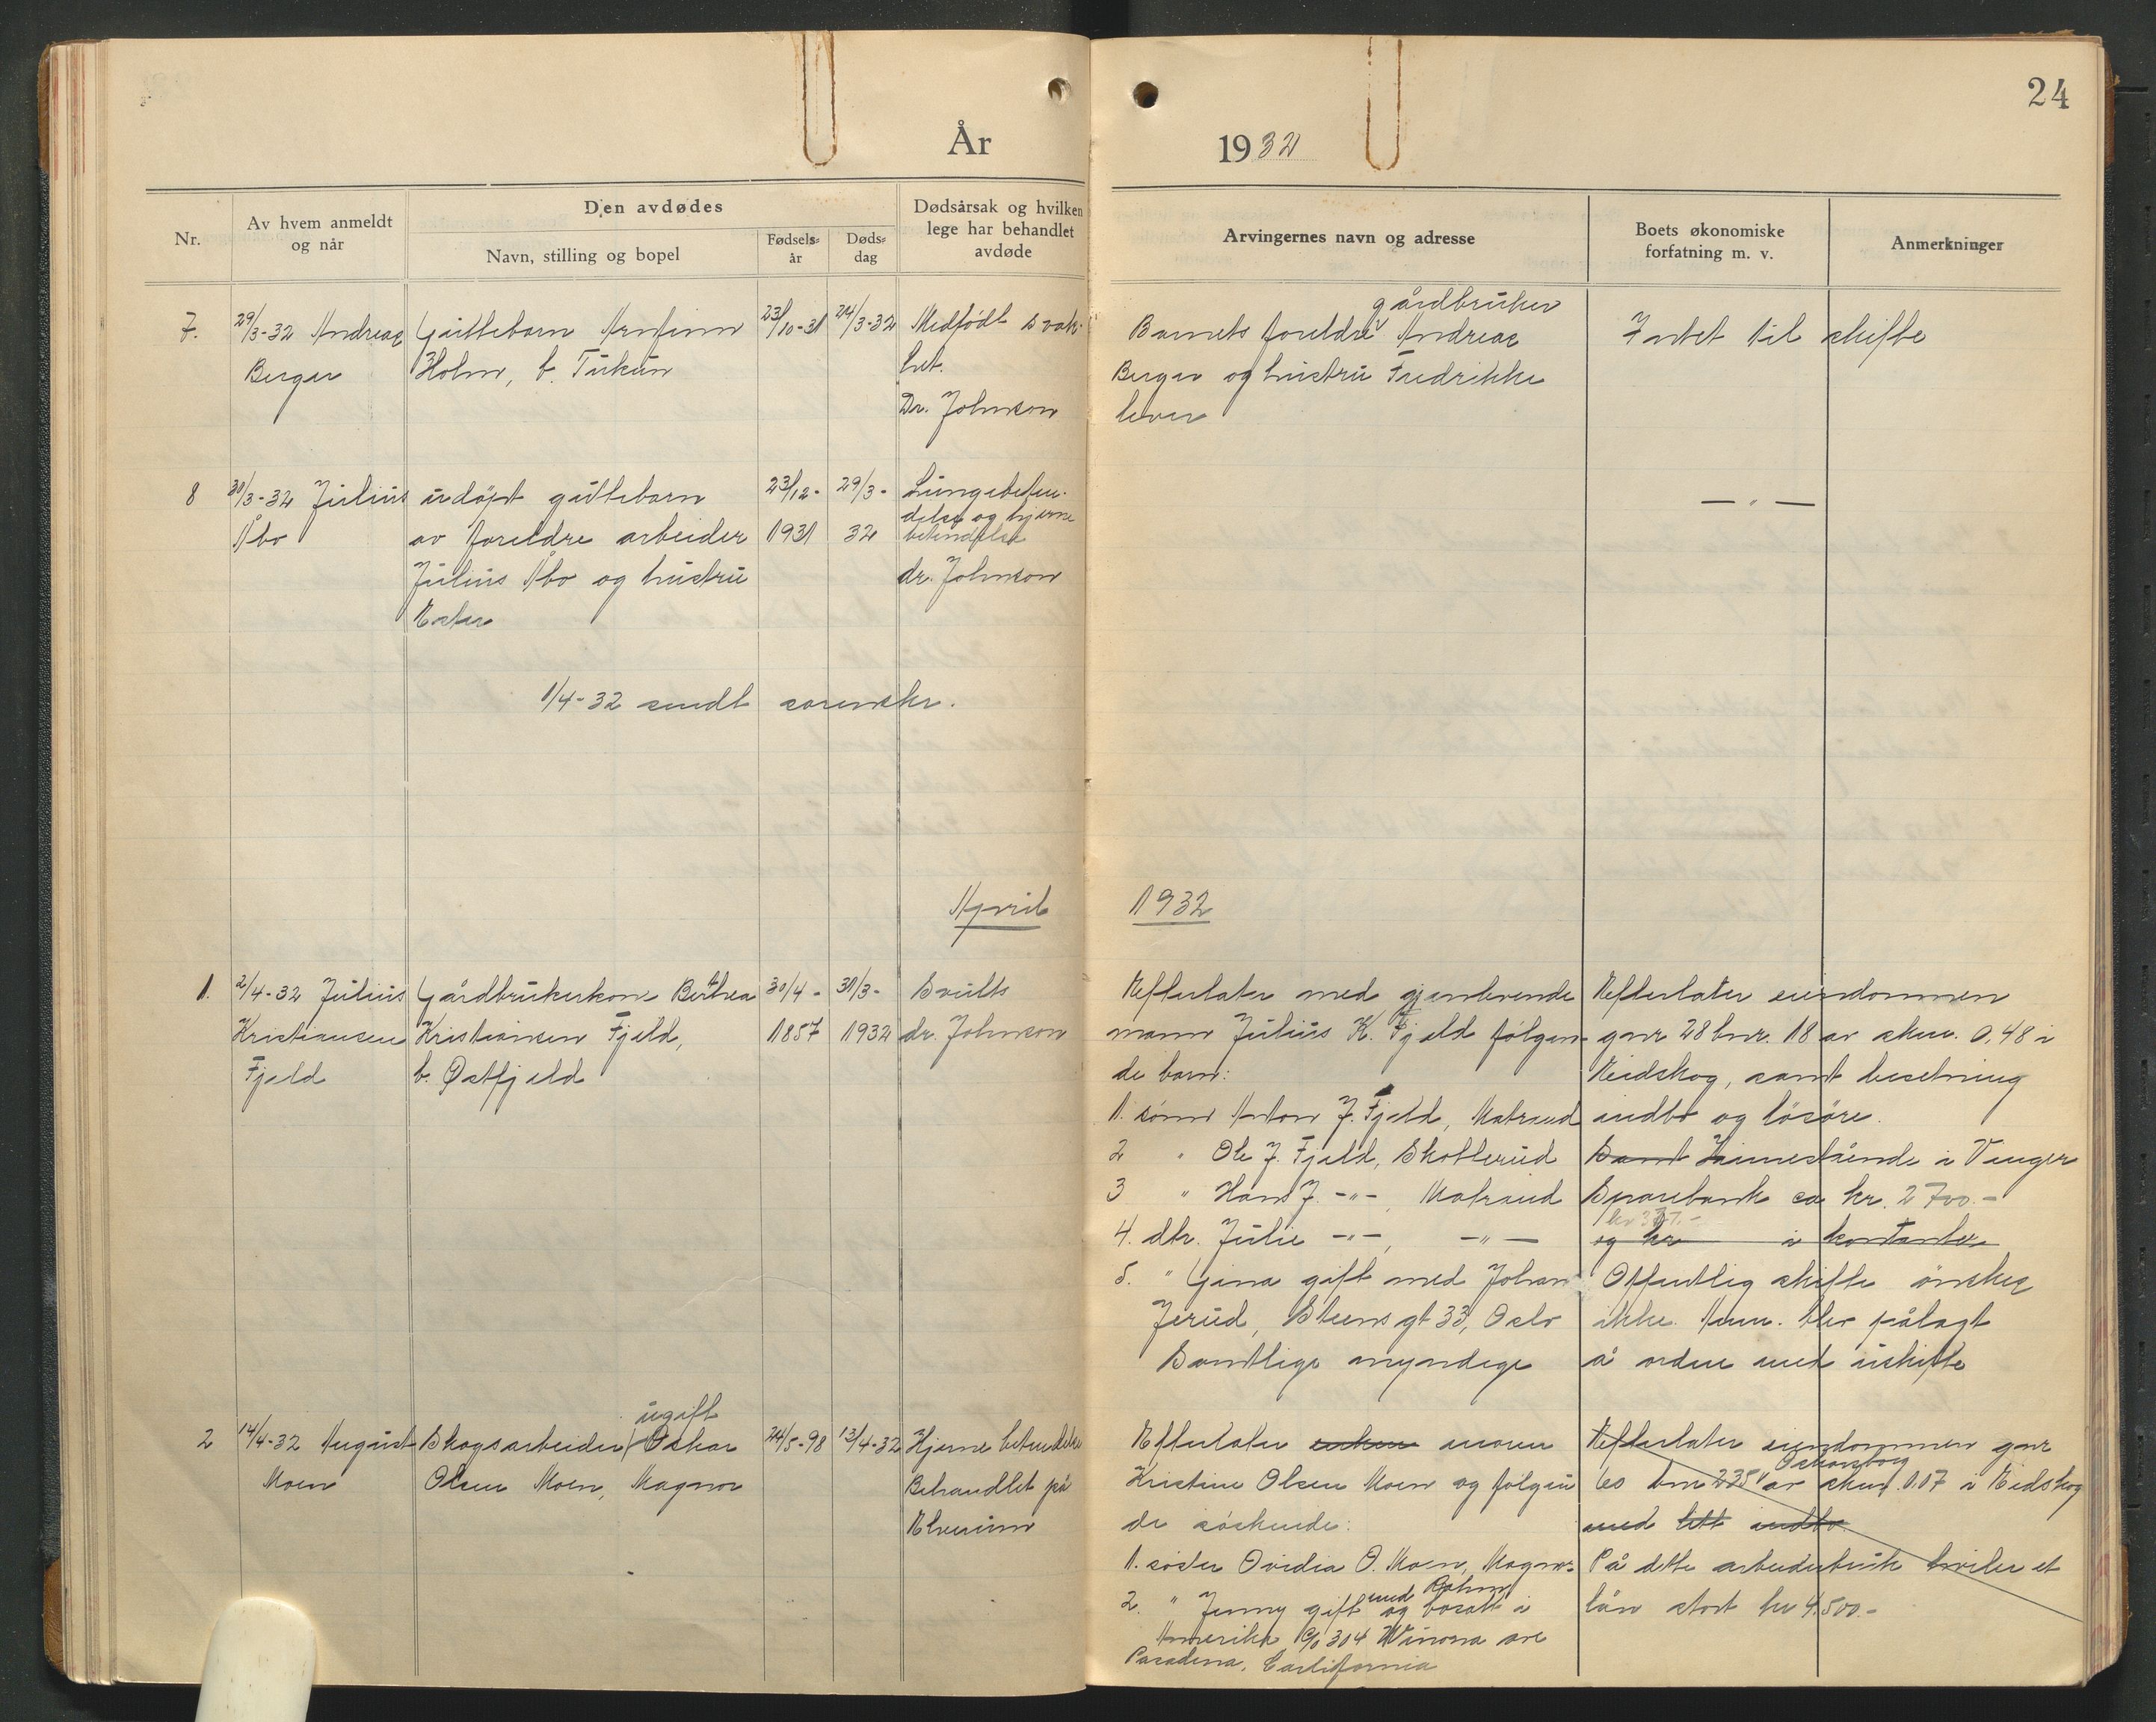 24
År 1932
Nr.
Av hvem anmeldt og når
Den avdødes
Navn, stilling og bopel
Fødselsår
Dødsdag
Dødsårsak og hvilken lege har behandlet avdøde
Arvingernes navn og adresse
Boets økonomiske forfatning m. v.
Anmerkninger
7. 29/3-32 Andreas Guttebarn Arnfinn 23/10-31 24/3-32 Medfødt svak-
Berger Holm, b. Turkun het.
Dr. Johnson
gårdbruker
Barnets foreldre Andreas Intet til skifte
Berger og hustru Fredrikke
lever
8 30/3-32 Julius udøpt guttebarn 23/12- 29/3- Lungebeten-
delse og hjerne
Åbo av foreldre arbeider 1931 32 betendelse
Julius Åbo og hustru dr. Johnson
Ester
— " —
1/4-32 sendt sorenskr.
April 1932
1. 2/4-32 Julius Gårdbrukerkone Berthea 30/4- 31/3- Svulst
Kristiansen Kristiansen Fjeld, 1857 1932 dr. Johnson
Fjeld b. Østfjeld
Efterlater med gjenlevende
mann Julius K. Fjeld følgen-
de barn:
1. sønn Anton J. Fjeld, Matrand
2 " Ole J. Fjeld, Skotterud
3 " Hans J. -"-, Matrand
4. dtr. Julie -"-, -"-
5. " Gina gift med Johan
Jerud, Steensgt 33, Oslo
Samtlige myndige
Efterlater eiendommen
gnr 28 bnr. 18 av skm. 0,48 i
Eidskog, samt besetning
indbo og løsøre.
Samt Innestående i Vinger
Sparebank ca kr. 2700.-
og kr i kontanter
Offentlig skifte ønskes
ikke. Anm. blev pålagt
å ordne med uskifte
ugift
2 14/4-32 August Skogsarbeider Oskar 24/5-98 13/4-32 Hjerne betendelse
Moen Olsen Moen, Magnor Behandlet på
Elverum
Efterlater enken moren
Kristine Olsen Moen og følgen
de søskende:
1. søster Ovidia O. Moen, Magnor.
2. " Jenny gift med og bosatt i
Amerika, C/o 304 Winona ave
Pasadena, Carlifornia
Efterlater eiendommen gnr
Oskarsborg
60 bnr 235 av skm. 0.07 i Eidskog
med litt indbo
På dette arbeiderbruk hviler et
lån stort kr 4.500.-